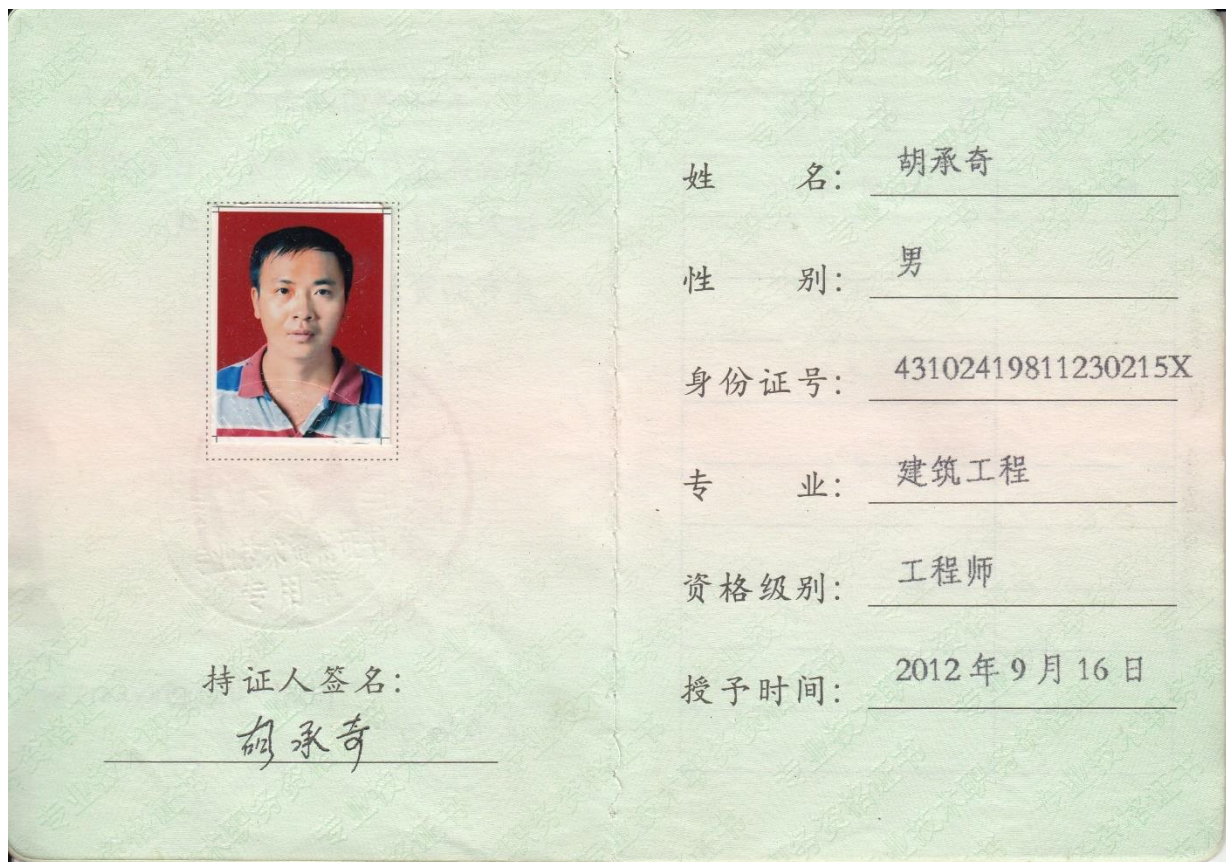 持证人签名：
胡承奇
姓 名： 胡承奇
性 别： 男
身份证号： 43102419811230215X
专 业： 建筑工程
资格级别： 工程师
授予时间： 2012 年 9 月 16 日